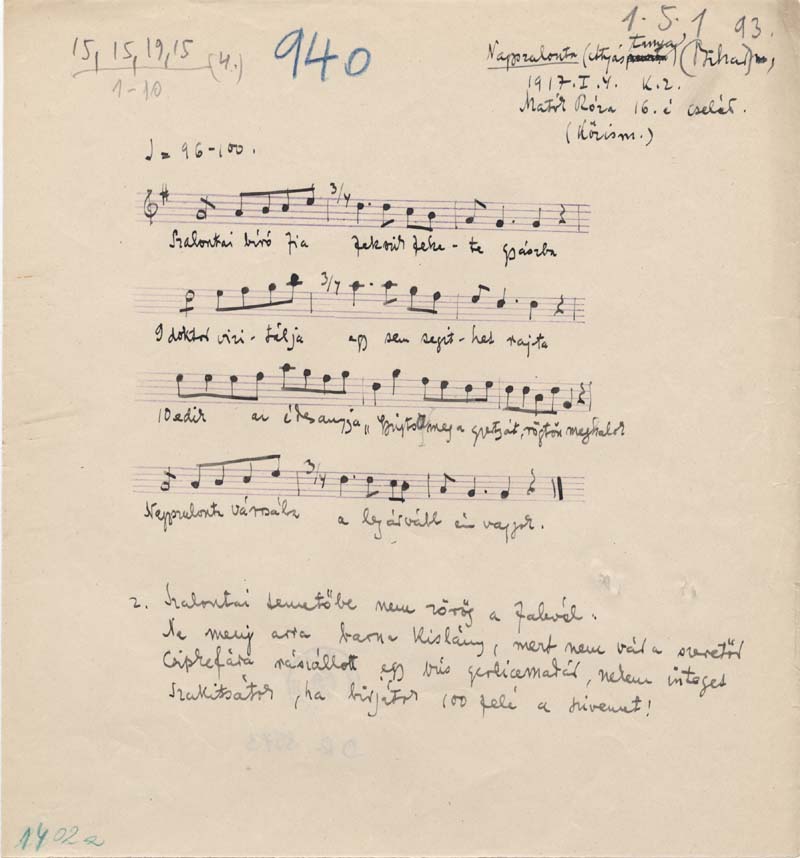 1.5.1 93.
15, 15, 19, 15 (4.)
1-10
940
Nagyszalonta (Atyás tanya, (Bihar) m,
1917.I.4. K.2.
Matók Róza 16. é cseléd.
(Közism.)
♩ = 96-100.
3/4
Szalontai bíró fia fekszik feke-te gyászba
3/4
9 doktor vizi-tálja egy sem segit-het rajta
10edik az édesanyja, meg a gyertyát, rögtön meghalok
3/4
Nagyszalonta városába a legárvább én vagyok.
2. Szalontai temetőbe nem zörög a falevél.
Ne menj arra barna kislány, mert nem vár a szeretőd
Cziprefára rászállott egy bús gerlicemadár, nekem integet
Szakitsátok, ha birjátok 100 felé a szivemet!
1402a